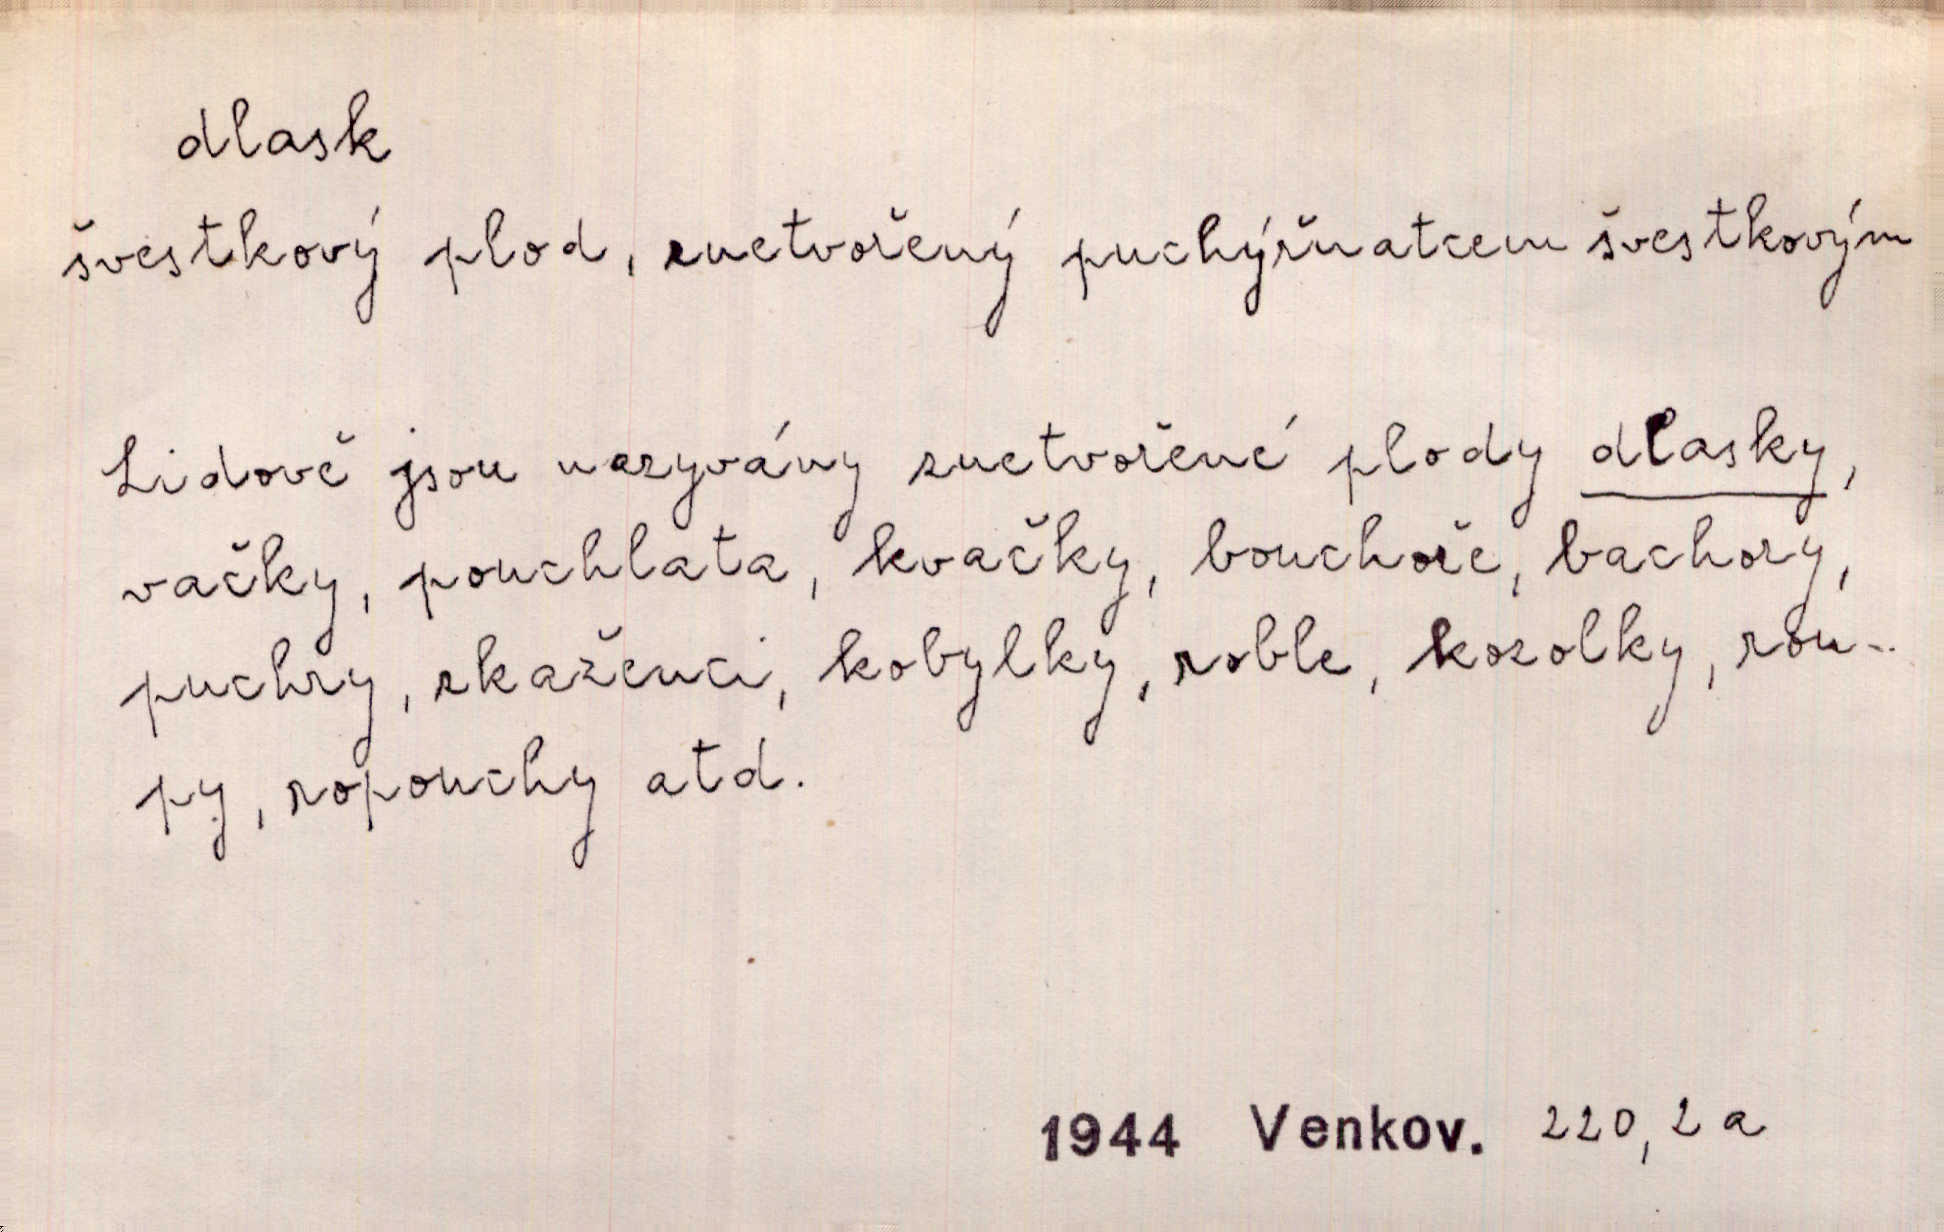 dlask
švestkový plod, znetvořený puchýřnatcem švestkovým
Lidově jsou nazyvány znetvořené plody dlasky,
vačky, pouchlata, kvačky, bouchoře, bachory,
puchry, zkaženci, kobylky, roble, kozolky, rou-
py, ropouchy atd.
1944 Venkov. 220, 2 a